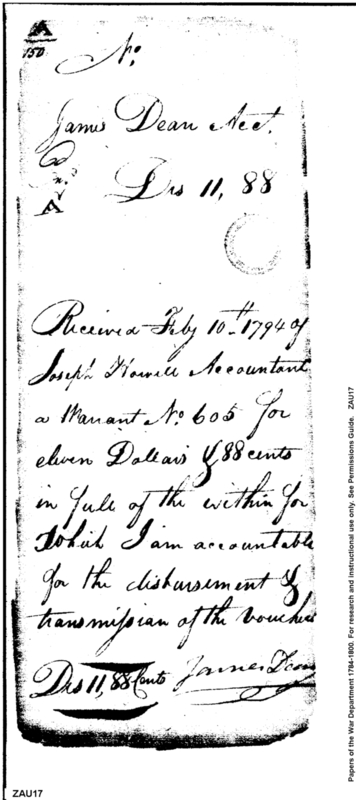 A
150
No.
James Dean Acct.
A
Drs 11, 88
Received Feby 10th 1794 of
Joseph Howell Accountant
a Warrant No. 605 for
eleven Dollars & 88 cents
in full of the within for
which I am accountable
for the disbursement &
transmission of the vouchers
Drs 11, 88 Cents James Dean
Papers of the War Department 1784-1800. For research and instructional use only. See Permissions Guide. ZAU17
ZAU17